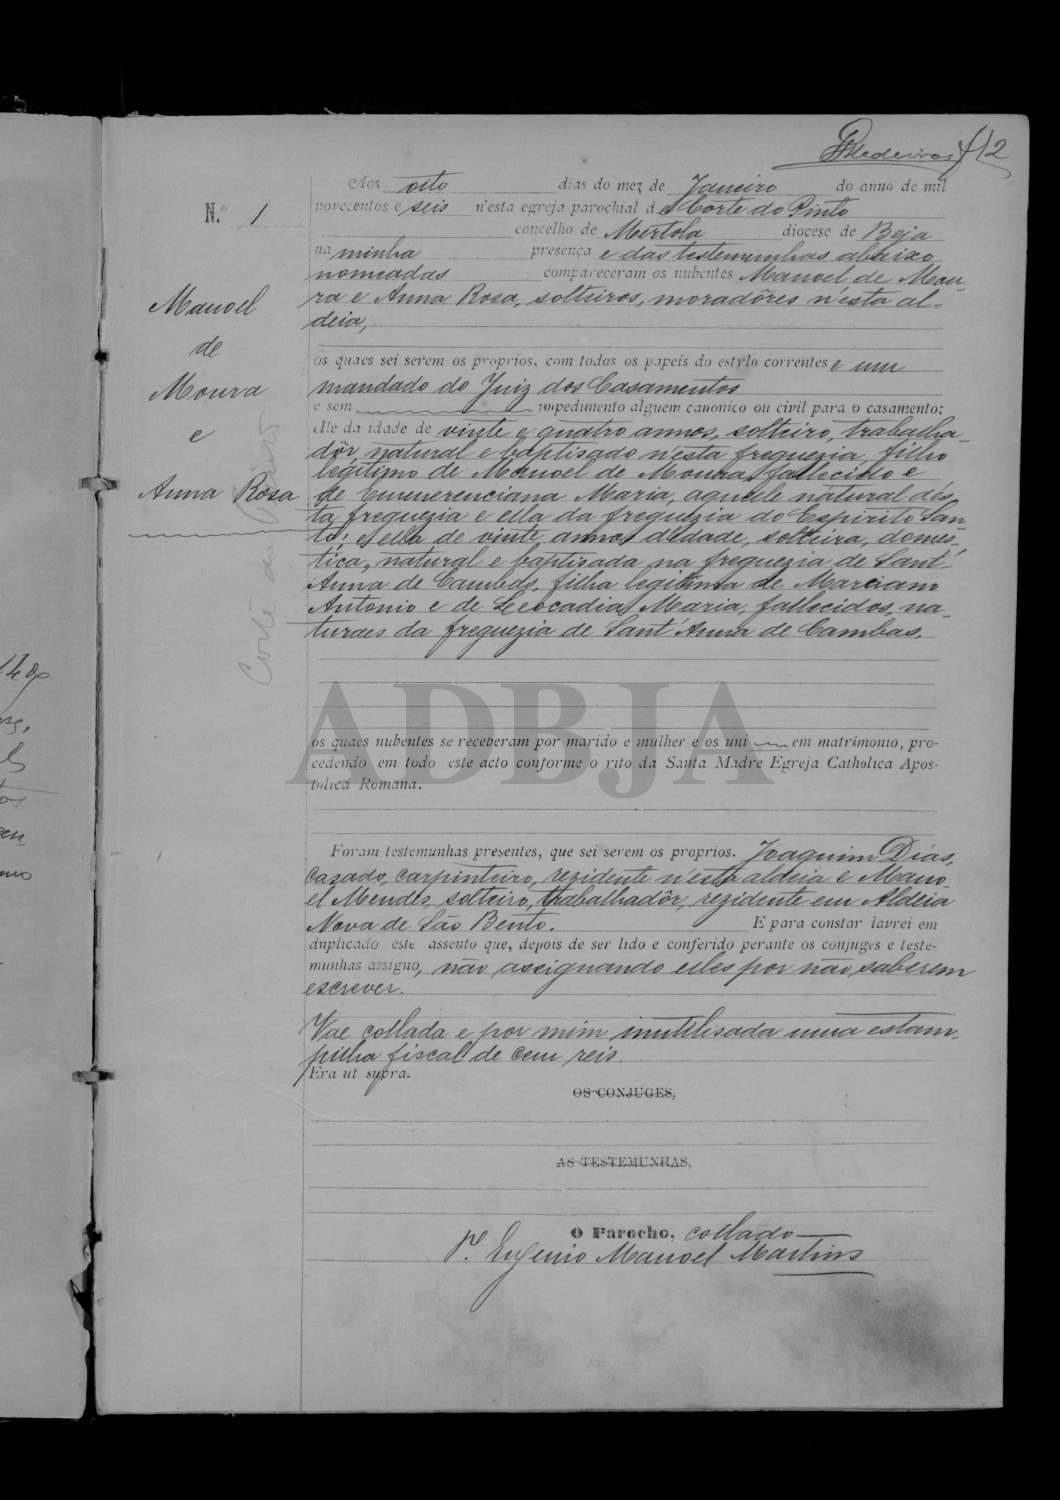 Medeiros f 2
Aos oito dias do mez de Janeiro do anno de mil
N.º 1
novecentos e seis n'esta egreja parochial d e Corte do Pinto
concelho de Mertola diocese de Beja
na minha presença e das testemunhas abaixo
nomeadas compareceram os nubentes Manoel de Mou-
ra e Anna Rosa, solteiros, moradôres n'esta al-
deia,
Manoel
de
Moura
e
Anna Rosa
Corte do Pinto
os quaes sei serem os proprios, com todos os papeis do estylo correntes e um
mandado do Juiz dos Casamentos
e sem impedimento algum canonico ou civil para o casamento;
elle da idade de vinte e quatro annos, solteiro, trabalha-
dôr, natural e baptisado n'esta freguezia, filho
legitimo de Manoel de Moura, fallecido e
de Emmerenciana Maria, aquele natural dés-
ta freguezia e ella da freguezia do Espirito San-
to; e ella de vinte annos d'edade, solteira, domes-
tica, natural e baptisada na freguezia de Sant'
Anna de Cambas, filha legitima de Marciano
Antonio e de Leocadia Maria, fallecidos, na-
turaes da freguezia de Sant'Anna de Cambas.
ADBJA
os quaes nubentes se receberam por marido e mulher e os uni em matrimonio, pro-
cedendo em todo este acto conforme o rito da Santa Madre Egreja Catholica Apos-
tolica Romana.
Foram testemunhas presentes, que sei serem os proprios, Joaquim Dias,
cazado, carpinteiro, rezidente n'esta aldeia e Mano-
el Mendes, solteiro, trabalhadôr, rezidente em Aldeia
Nova de São Bento. E para constar lavrei em
duplicado este assento que, depois de ser lido e conferido perante os conjuges e teste-
munhas assigno, não assignando elles por não saberem
escrever.
Vae collada e por mim inutilisada uma estam-
pilha fiscal de cem reis.
Era ut supra.
OS CONJUGES,
AS TESTEMUNHAS,
O Parocho, collado
P.e Eugenio Manoel Martins